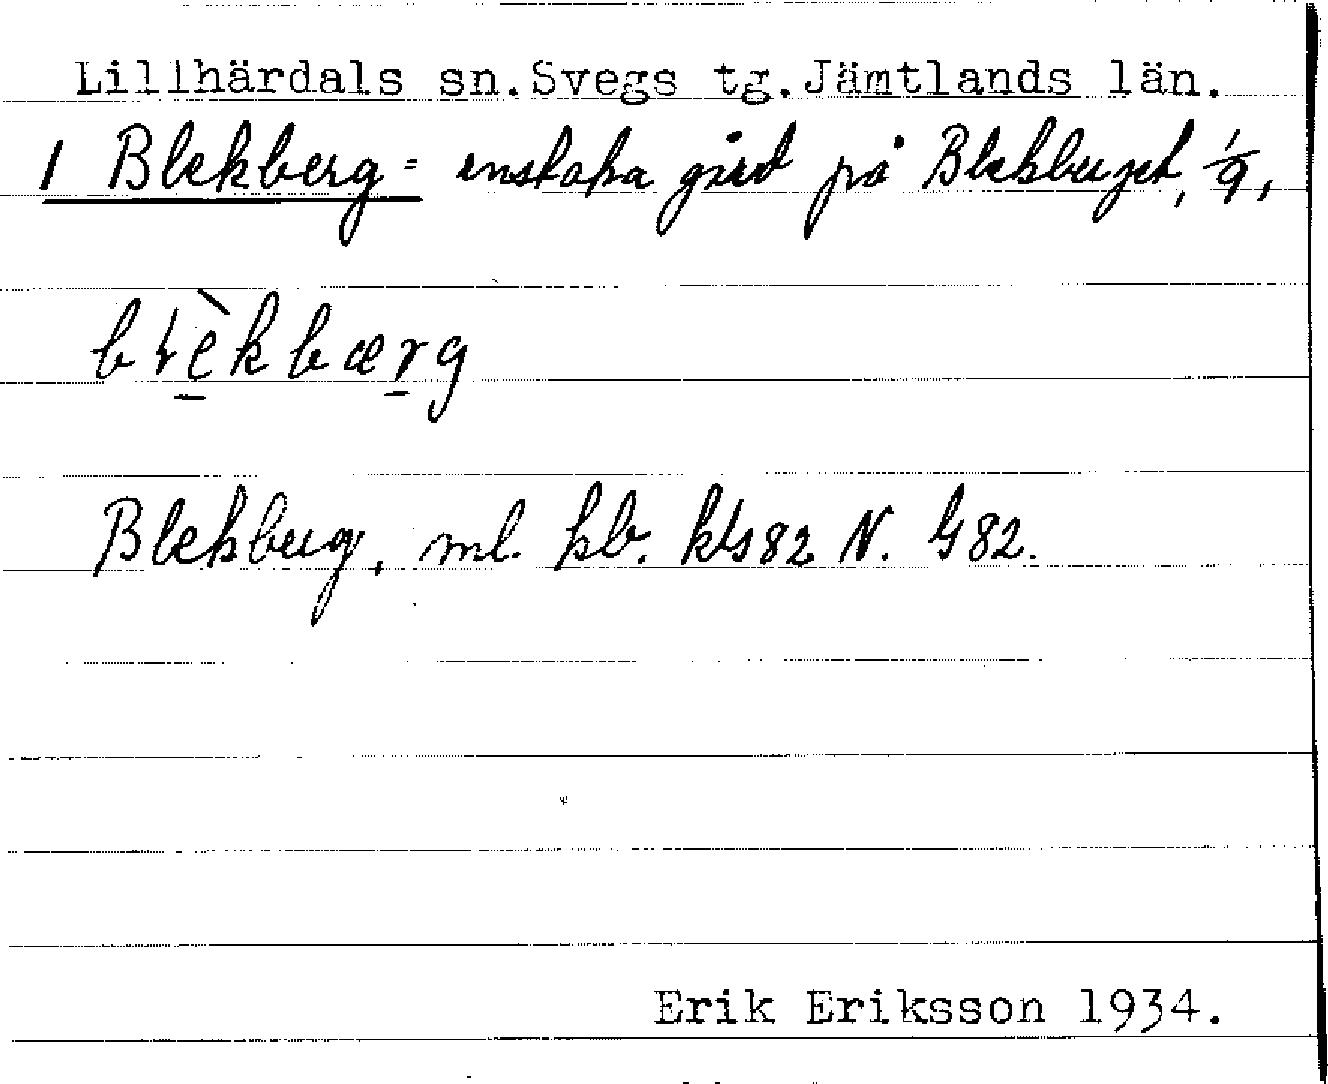 Lillhärdals sn. Svegs tg. Jämtlands län.
1 Blekberg = enstaka gård på Blekberget, 1/9,
blèkbærg
Blekberg, ml. kb. kls 82 N. G 82.
Erik Eriksson 1934.